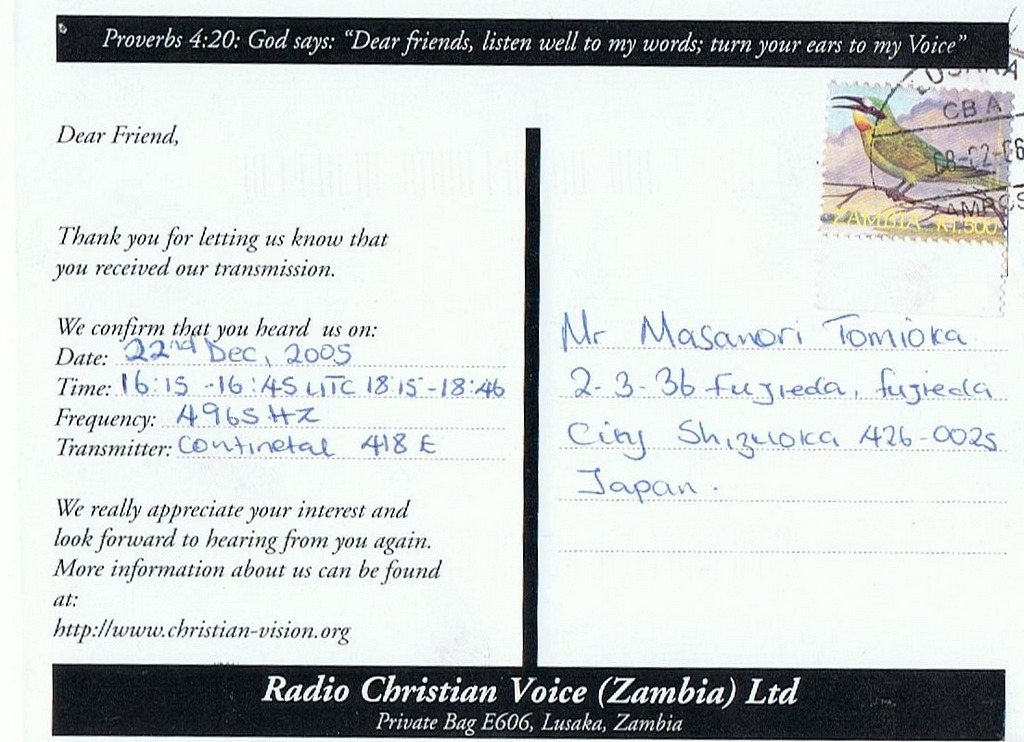 Proverbs 4:20: God says: "Dear friends, listen well to my words; turn your ears to my Voice"
LUSAKA
CBA
08-02-06
ZAMPOS
ZAMBIA K1,500
Dear Friend,
Thank you for letting us know that
you received our transmission.
We confirm that you heard us on:
Date: 22nd Dec, 2005
Time: 16:15 -16:45 UTC 18:15-18:46
Frequency: 4965 HZ
Transmitter: Continetal 418 E
We really appreciate your interest and
look forward to hearing from you again.
More information about us can be found
at:
http://www.christian-vision.org
Mr Masanori Tomioka
2-3-36 Fujieda, fujieda
City Shizuoka 426-0025
Japan.
Radio Christian Voice (Zambia) Ltd
Private Bag E606, Lusaka, Zambia